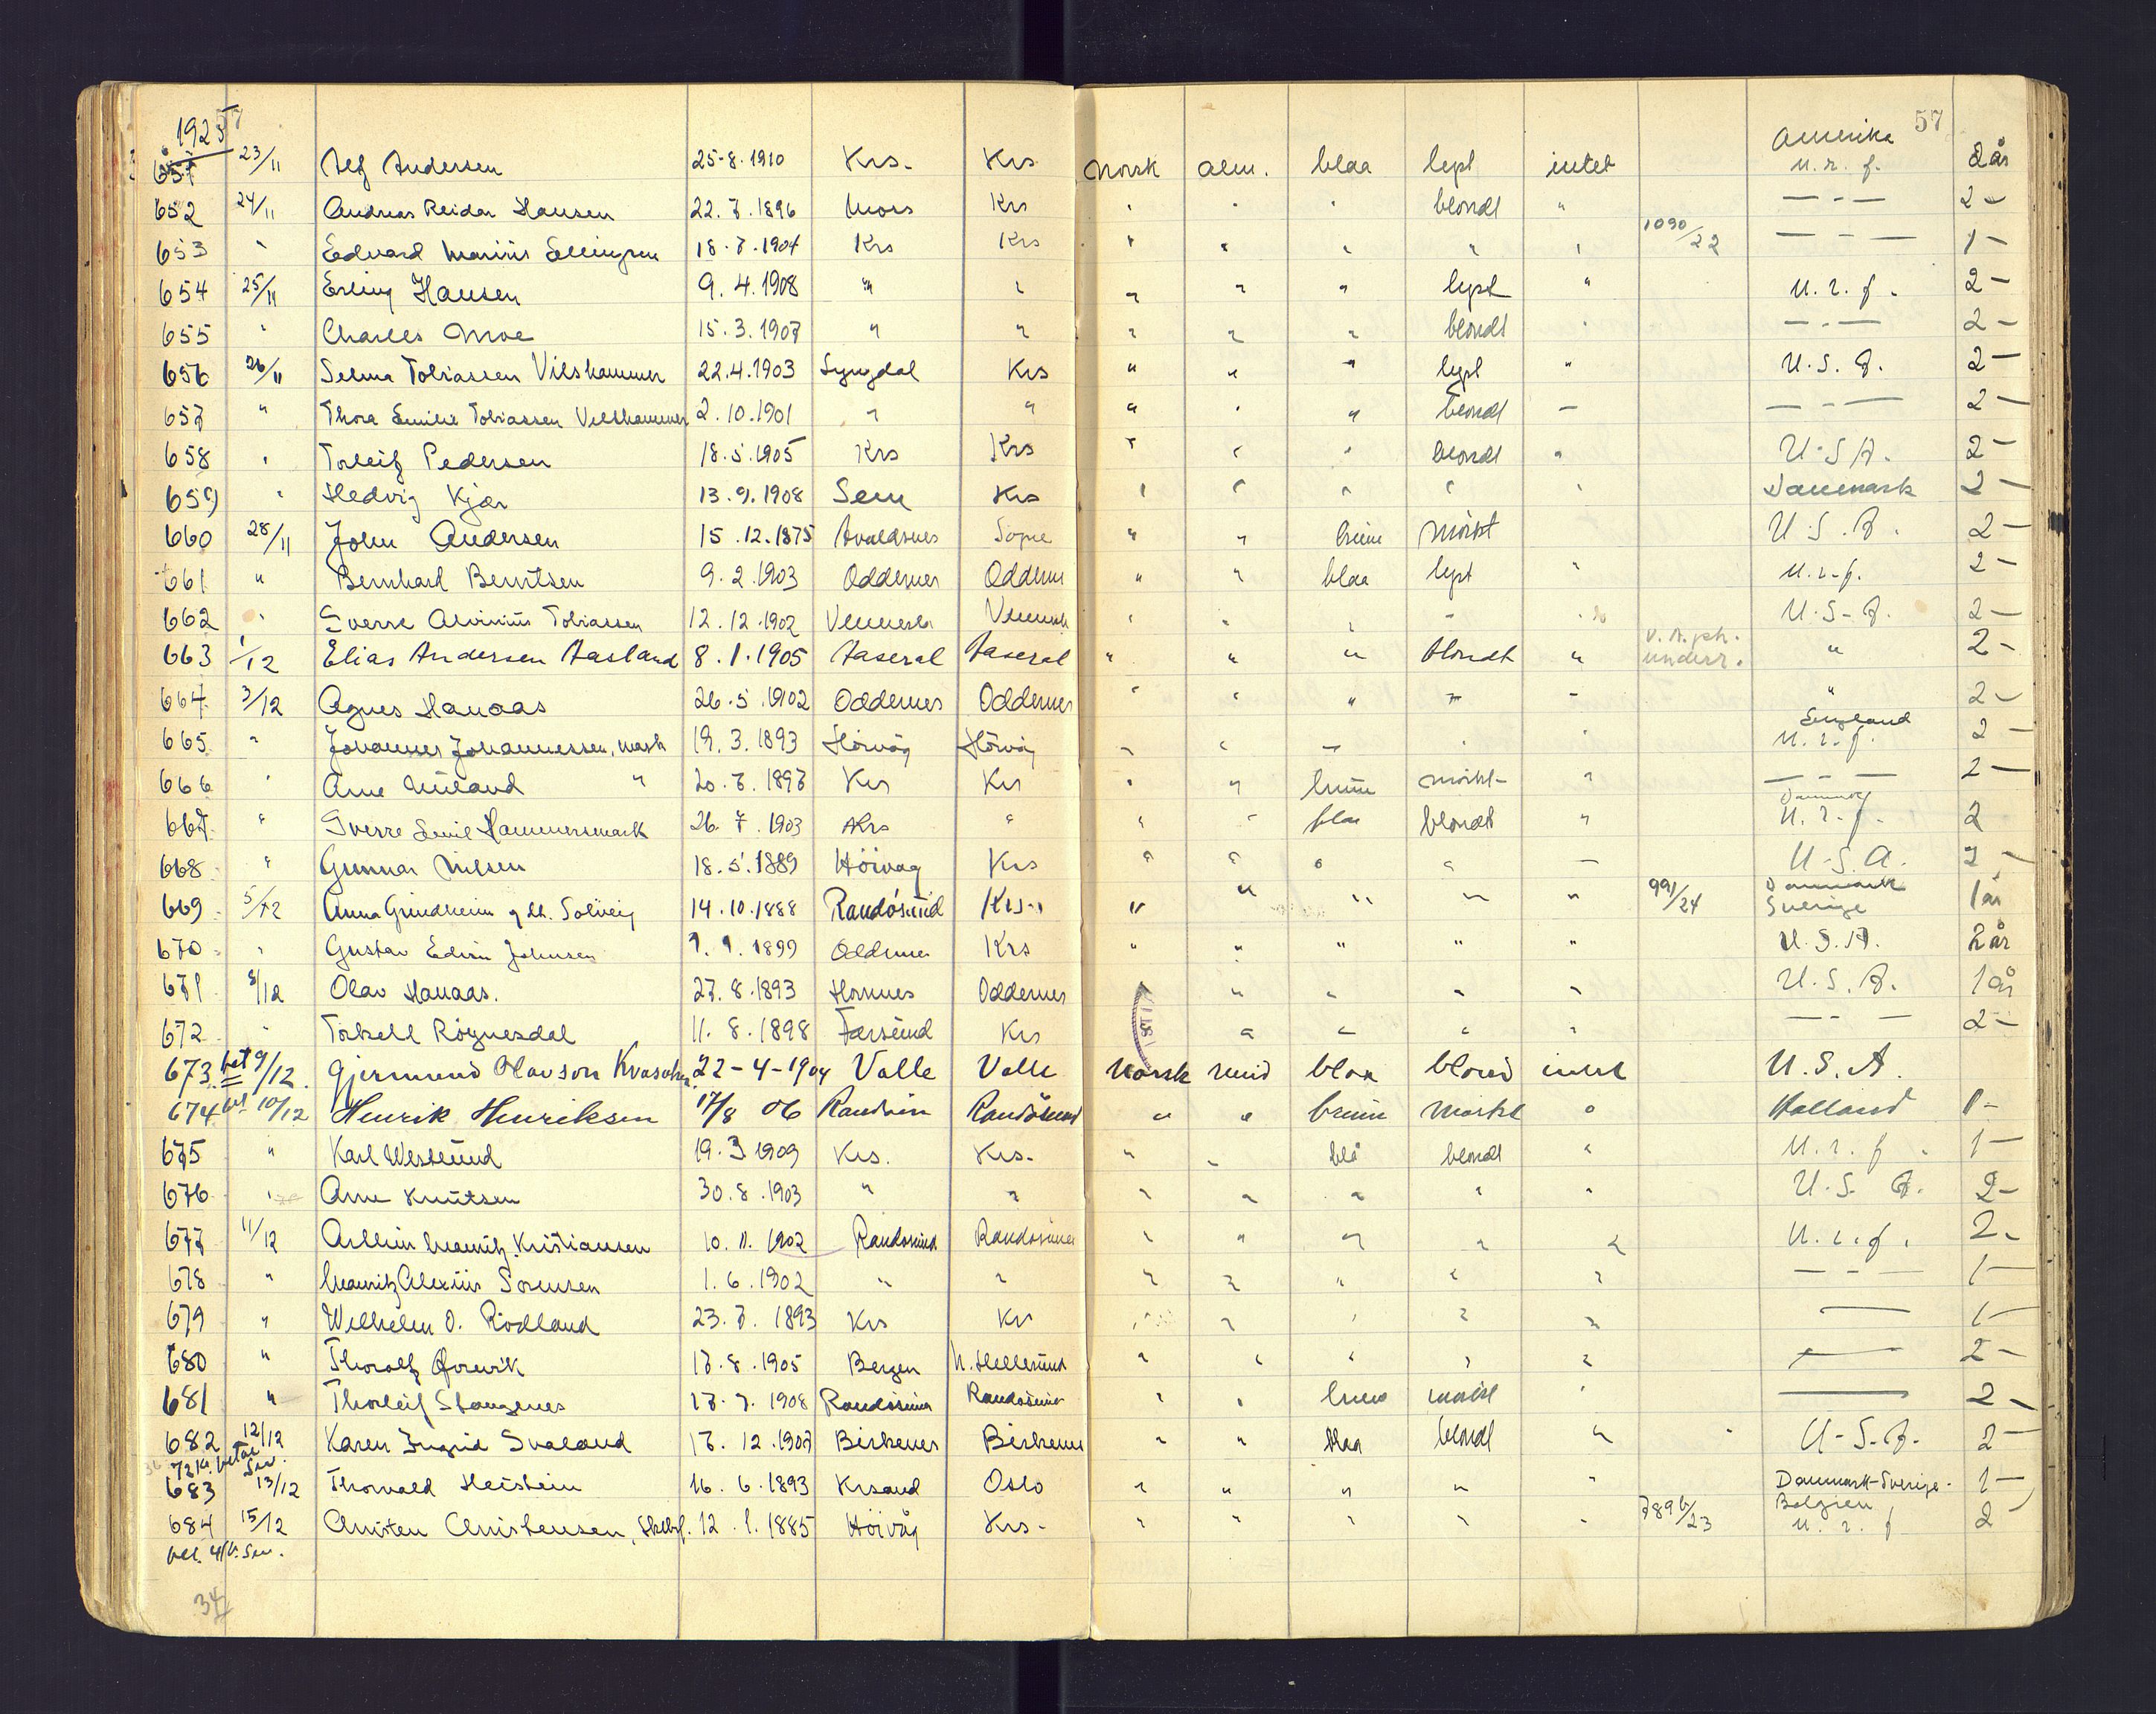 1925 57
651 23/11 Alf Andersen 25-8-1910 Krs. Krs norsk alm. blaa lyst intet Amerika u.r.f. 2 år
652 24/11 Andreas Reidar Hansen 22.7.1896 Moss Krs " " " blondt " — " — 2 —
653 " Edvard Marius Ellingsen 18.7.1904 Krs Krs " " " " " 1090/22 — " — 1 —
654 25/11 Erling Hansen 9.4.1908 " " " " " lyst " u.r.f. 2 —
655 " Charles Moe 15.3.1907 " " " " " blondt " — " — 2 —
656 26/11 Selma Tobiassen Vilshammer 22.4.1903 Lyngdal Krs " " " lyst " U.S.A. 2 —
657 " Thora Emilie Tobiassen Vilshammer 2.10.1901 " " " " " blondt — — " — 2 —
658 " Torleif Pedersen 18.5.1905 Krs Krs " " " blondt " U.S.A. 2 —
659 " Hedvig Kjær 13.9.1908 Sem Krs " " " " " Danmark 2 —
660 28/11 John Andersen 15.12.1875 Avaldsnes Søgne " " brune mørkt U.S.A. 2 —
661 " Bernhard Berntsen 9.2.1903 Oddernes Oddernes " " blaa lyst " u.r.f. 2 —
662 " Sverre Alvinius Tobiassen 12.12.1902 Vennesla Vennesla " " " " " U.S.A. 2 —
663 1/12 Elias Andersen Aasland 8.1.1905 Aaseral Aaseral " " " blondt " underr. " 2 -
664 3/12 Agnes Hanaas 26.5.1902 Oddernes Oddernes " " " " " " 2 —
665 " Johannes Johannessen, mask 19.3.1893 Høivåg Høivåg " " " " " England u.r.f. 2 —
666 " Arne Uuland " 20.7.1897 Krs Krs " " brune mørkt " — " — 2 —
667 " Sverre Emil Hammersmark 26.7.1903 Krs " " " blaa blondt " Danmark u.r.f. 2
668 " Gunnar Nilsen 18.5.1889 Höivag Krs " " " " — U.S.A. 2 —
669 5/12 Anna Grindheim g dt. Solveig 14.10.1888 Randösund Krs. " " " " " 991/24 Danmark Sverige 1 år
670 " Gustav Edvin Johnsen 1.9.1899 Oddernes Krs " " " " " U.S.A. 2 år
671 8/12 Olav Hanaas. 27.8.1893 Hornnes Oddernes " " " " U.S.A. 1 år
672 " Torkell Rögnesdal 11.8.1898 Farsund Krs " " " " — " — 2 —
673 bet 9/12 Gjermund Olavson 22-4-1904 Valle Valle Norsk mid blaa blond intet U.S.A.
674 bet 10/12 Henrik Henriksen 17/8 06 Randøsun Randøsund " " brune mørkt " Holland 1 -
675 " Karl Westlund 19.3 1909 Krs. Krs. " " blå blondt " u.r.f. 1 —
676 " Arne Knutsen 30.8.1903 " " " " " " " U.S.A. 2 -
677 11/12 Mauritz Kristiansen 10.11.1902 Randøsund Randøsund " " " " " u.r.f. 2 -
678 " Mauritz Alexius Sørensen 1.6.1902 " " " " " " " — " — 1 —
679 " Wilhelm O. Rödland 23.7.1893 Krs Krs " " " " " — 1 —
680 " Thorolf Ørevik 17.8.1905 Bergen N. Hellesund " " " " " — 2 —
681 " Thorleif Stangenes 17.7.1908 Randøsund Randøsund " " brune mørkt " — 2 —
682 12/12 Karen Ingrid Svaland 17.12.1907 Birkenes Birkenes " " blaa blondt " U.S.A. 2 —
683 13/12 Thorvald Heistein 16.6.1893 Krsand Oslo " " " " " Danmark-Sverige- 1 —
684 15/12 Christen Christensen, 12.1.1885 Höivåg Krs. " " " " " 789b/23 Belgien u.r.f 2
34